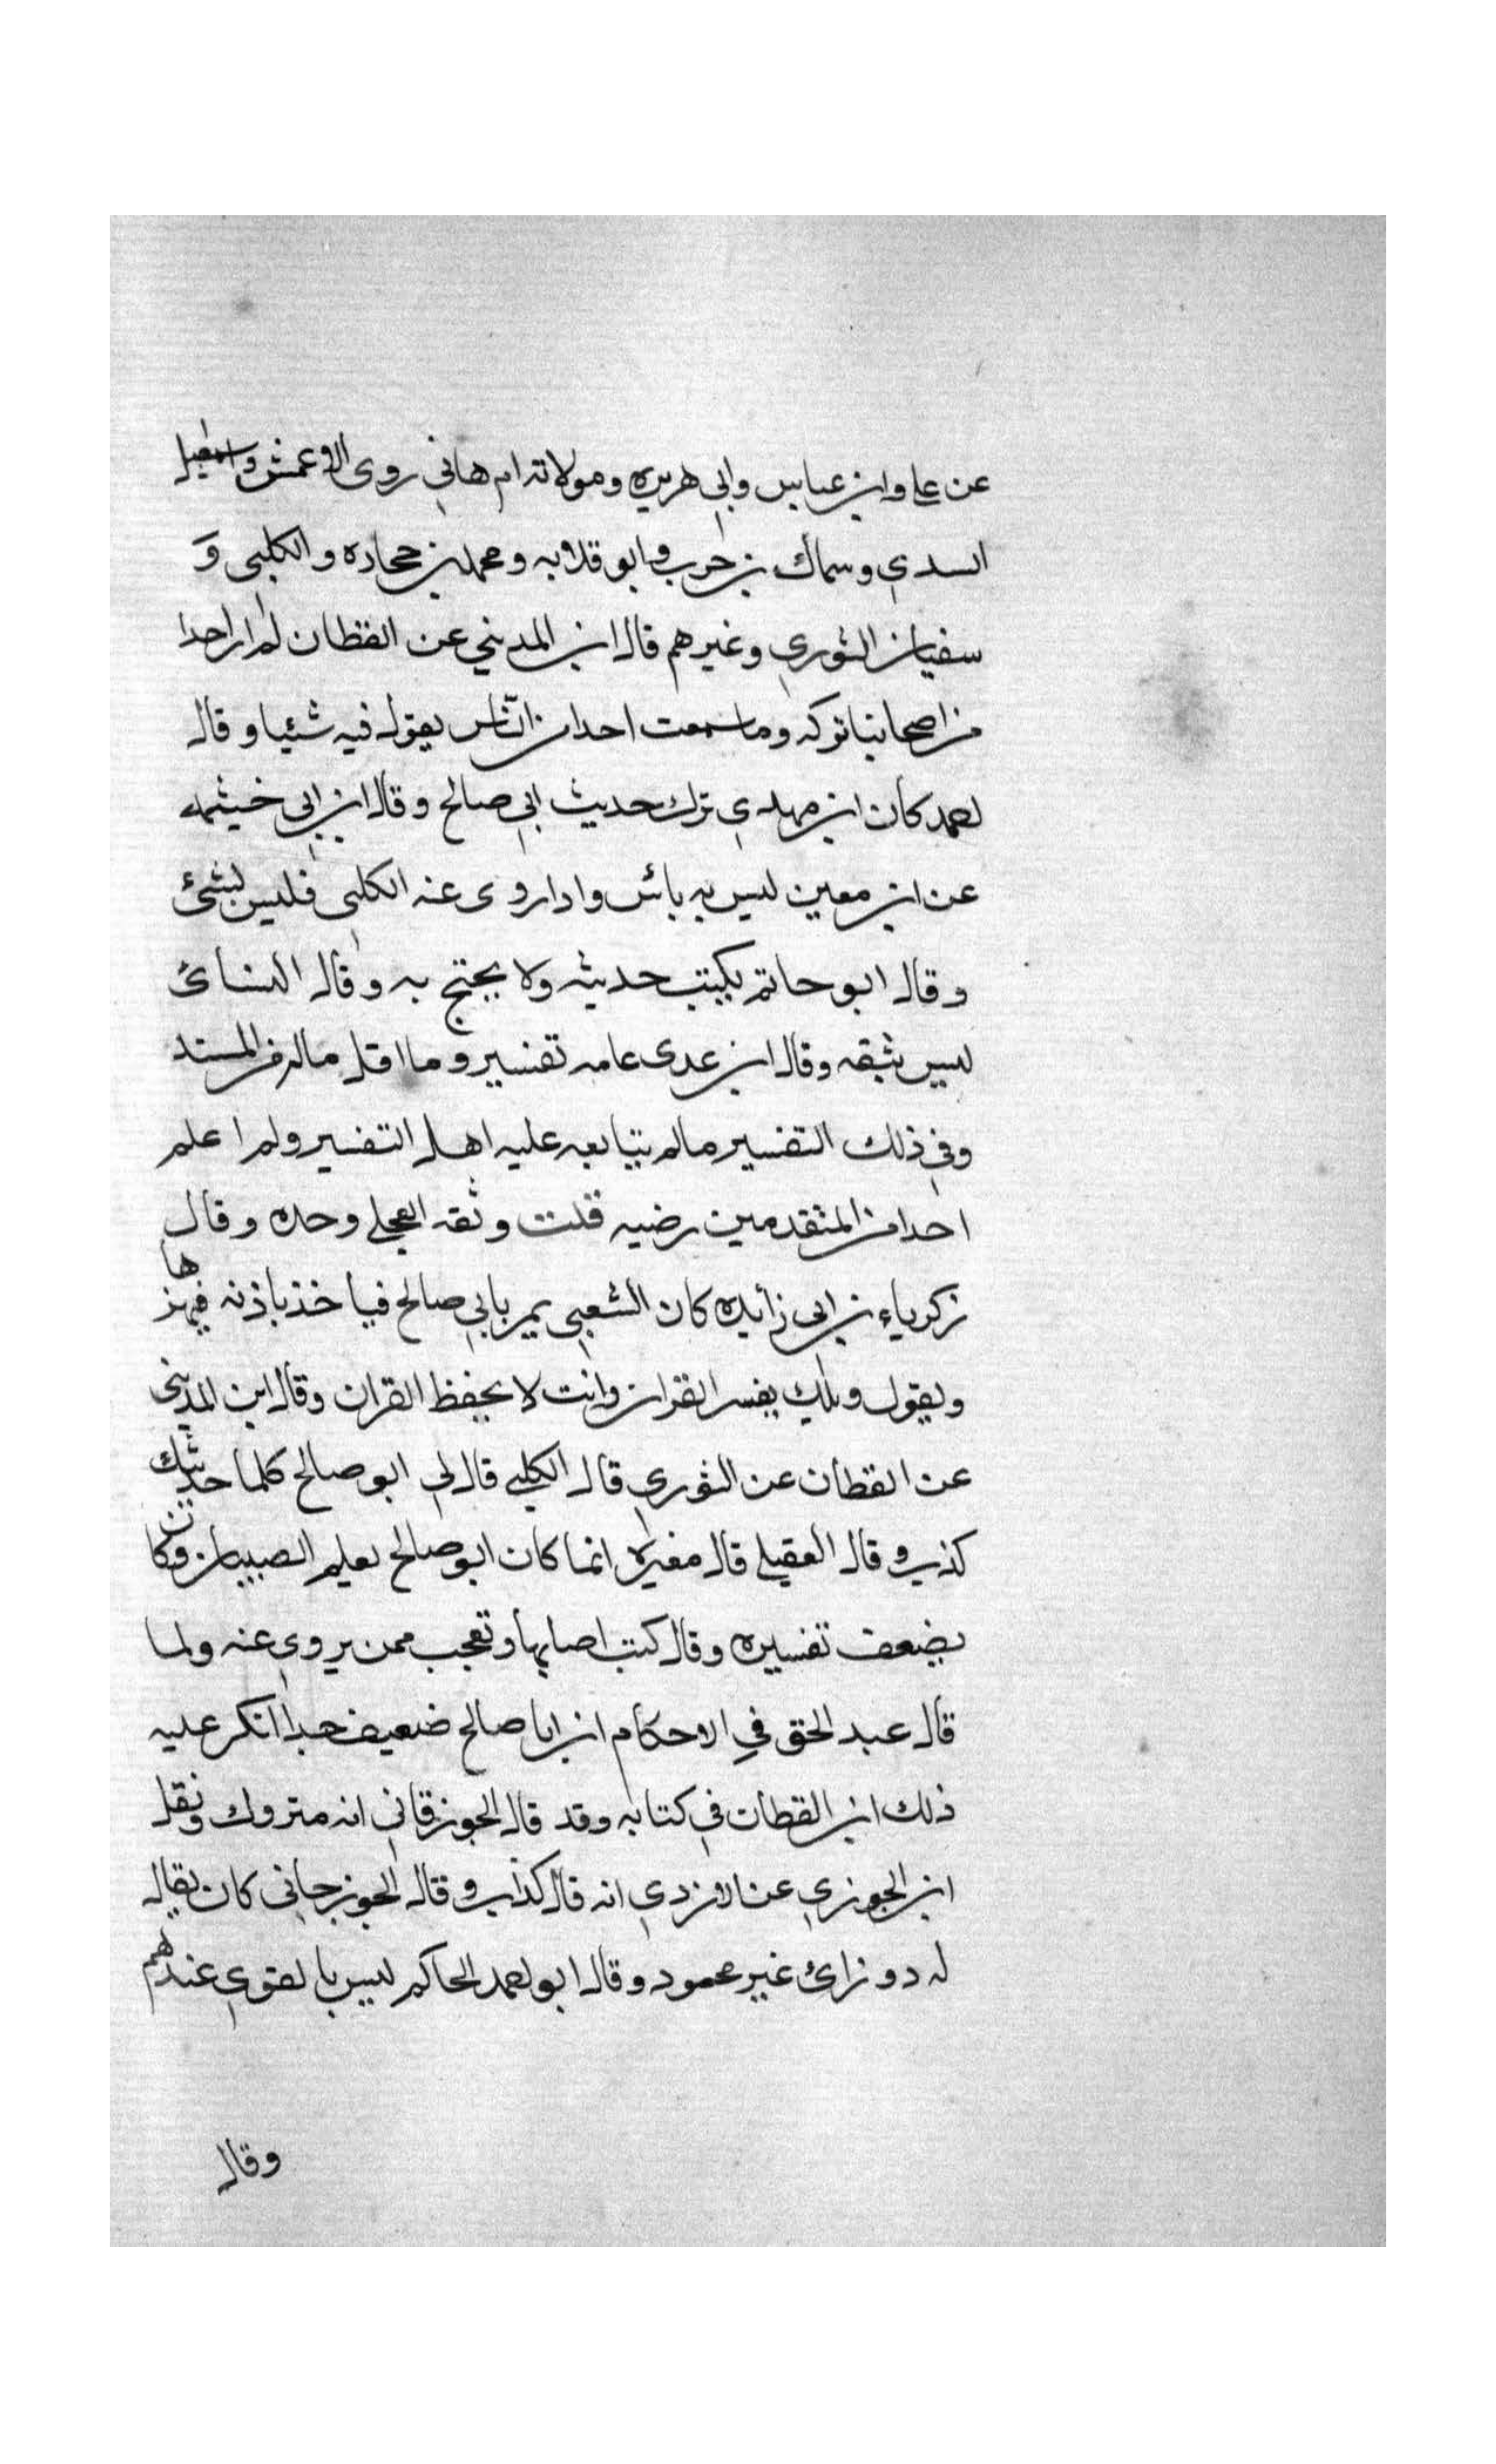 عن علي وابن عباس وابي هريره ومولاته ام هاني روى الاعمش واسمعيل
السدي وسماك بن حرب وابو قلابه ومحمد بن حجاده والكلبى و
سفيان الثوري وغيرهم قال ابن المديني عن القظان لم ار احدا
من اصحابنا توكه وما سمعت احدا من النّاس يقول فيه شئيا وقال
احمد كان ابن مهدي ترك حديث ابي صالح وقال ابن ابي خيثمه
عن ابن معين ليس به بائس واداروى عنه الكلبى فليس بشئ
وقال ابو حاتم يكتب حديثه ولا يحتج به وقال النسائ
ليس بثقه وقال ابن عدى عامه تفسير وما اقل ماله من المسند
وفي ذلك التفسير مالم يتابعه عليه اهل التفسير ولم اعلم
احدا من المتقدمين رضيه قلت وثقه العجلي وحده وقال
زكرياء بن ابى زائده كان الشعبي يمر بابي صالح فياخذ باذنه فيهزها
ويقول ويلك يفسر القران وانت لا يحفظ القران وقال ابن المديني
عن القطان عن الثوري قال الكلبي قال لي ابو صالح كلما حدثتك
كذب وقال العقيلي قال مغيره انما كان ابو صالح يعلم الصبيان وكان
يضعف تفسيره وقال كتب اصابها وتعجب ممن يروي عنه ولما
قال عبد الحق في الاحكام ان ابا صالح ضعيف جدا انكر عليه
ذلك ابن القطان في كتابه وقد قال الجوزقاني انه متروك ونقل
ابن الجوزي عن الازدي انه قال كذاب وقال الجوزجاني كان يقال
له دو زائ غير محمود وقال ابو احمد الحاكم ليس بالقوي عندهم
وقال